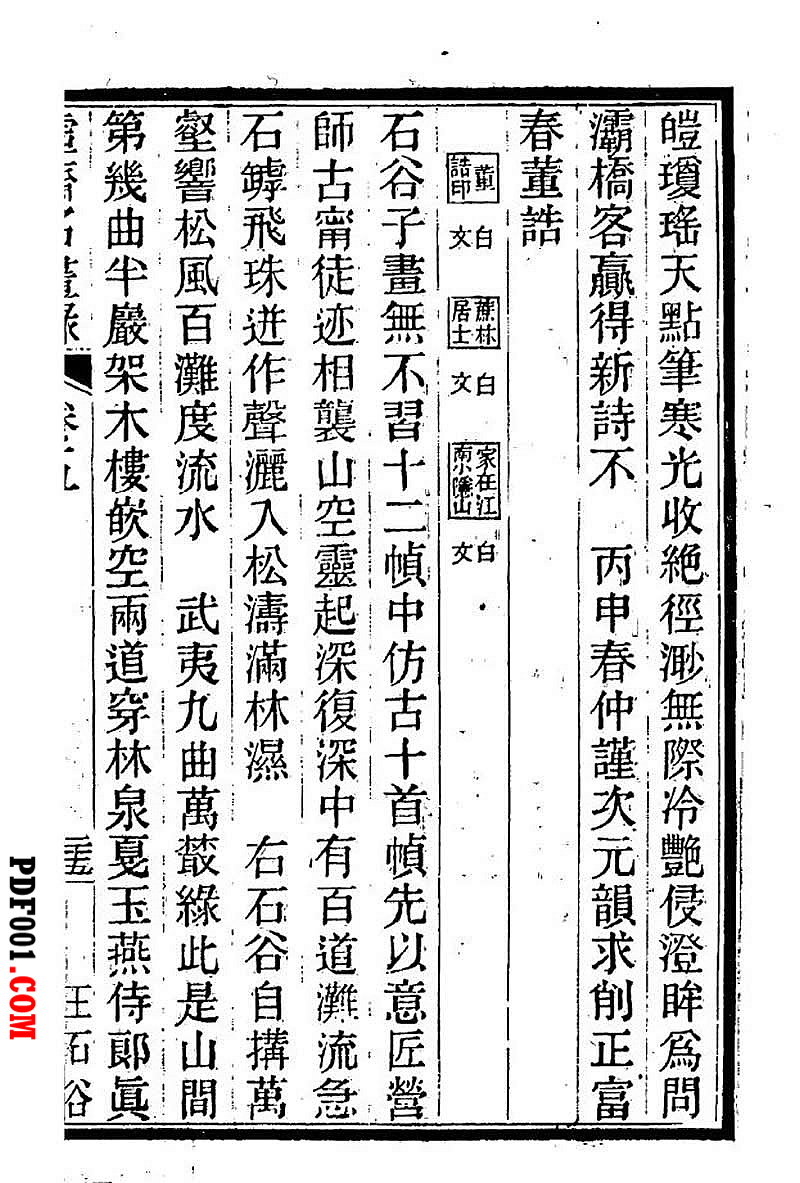 皚瓊瑤天點筆寒光收絕徑渺無際冷艷侵澄眸爲問
灞橋客贏得新詩不　丙申春仲謹次元韻求削正富
春董誥
董誥印 白文 蔗林居士 白文 家在江南小隱山 白文
石谷子畫無不習十二幀中仿古十首幀先以意匠營
師古甯徒迹相襲山空靈起深復深中有百道灘流急
石罅飛珠迸作聲灑入松濤滿林濕　右石谷自搆萬
壑響松風百灘度流水　武夷九曲萬叢綠此是山間
第幾曲半巖架木樓嵌空兩道穿林泉戛玉燕侍郞眞
虛齋名畫錄 卷十九 二十五 王石谷
PDF001.COM